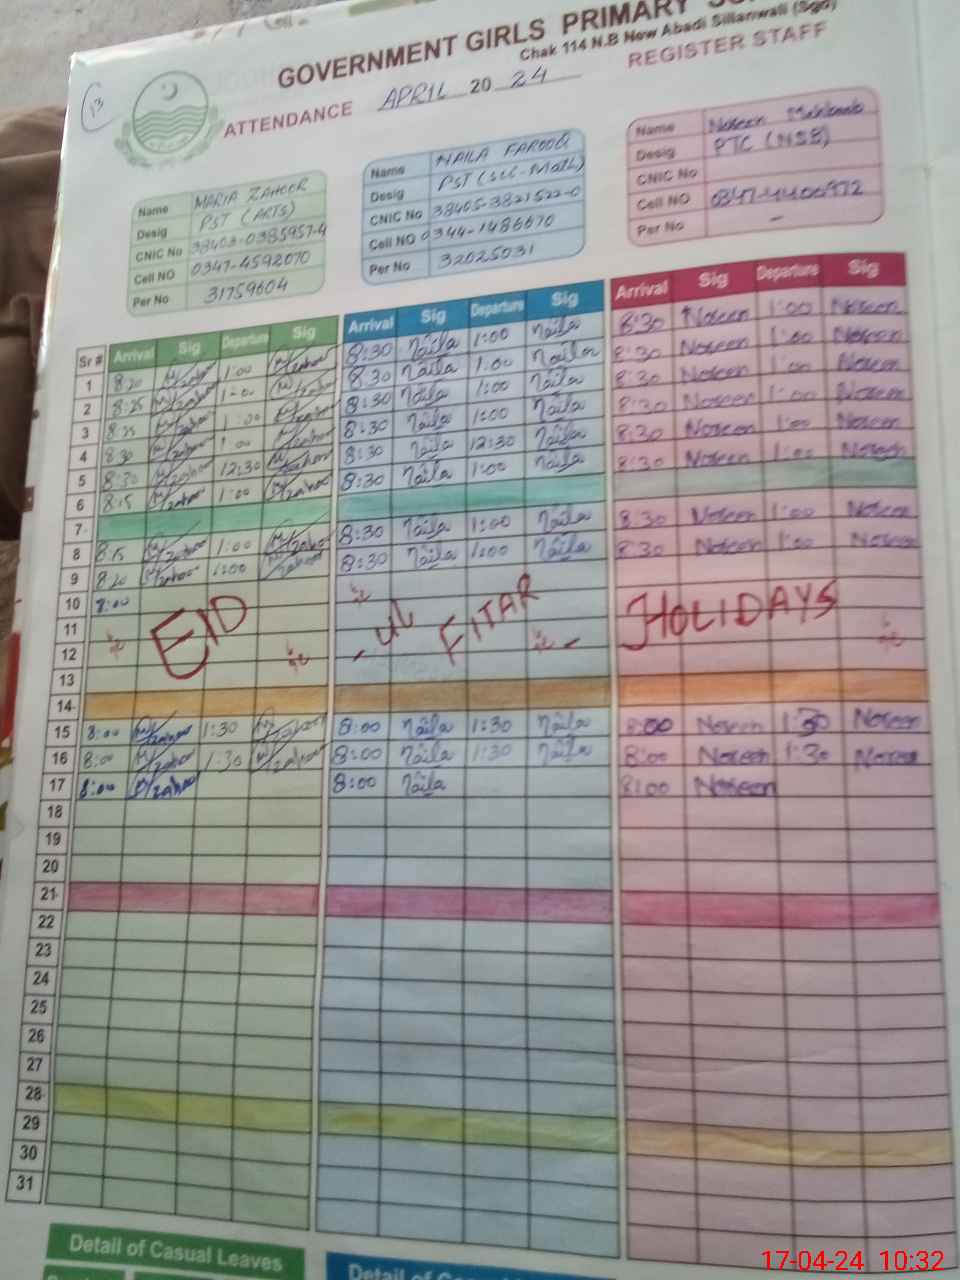 GOVERNMENT GIRLS PRIMARY
Chak 114 N.B New Abadi Sillanwali (Sgd)
ATTENDANCE APRIL 2024 REGISTER STAFF
Name MARIA ZAHOOR
Desig PST (ARTS)
CNIC No 38403-0385957-4
Cell NO 0347-4592070
Per No 31759604
Name NAILA FAROOQ
Desig PST (Sci-Math)
CNIC No 38405-3821522-0
Cell NO 0344-1486670
Per No 32025031
Name Noseen
Desig PTC (NSB)
CNIC No
Cell NO
Per No -
Sr # Arrival Sig Departure Sig Arrival Sig Departure Sig Arrival Sig Departure Sig
1 8:20 M/zahoor 1:00 M/zahoor 8:30 Naila 1:00 Naila 8:30 Noseen 1:00 Noseen
2 8:25 M/zahoor 1:00 M/zahoor 8:30 Naila 1:00 Naila 8:30 Noseen 1:00 Noseen
3 8:25 M/zahoor 1:00 M/zahoor 8:30 Naila 1:00 Naila 8:30 Noseen 1:00 Noseen
4 8:30 M/zahoor 1:00 M/zahoor 8:30 Naila 1:00 Naila 8:30 Noseen 1:00 Noseen
5 8:30 M/zahoor 12:30 M/zahoor 8:30 Naila 12:30 Naila 8:30 Noseen 1:00 Noseen
6 8:15 M/zahoor 1:00 M/zahoor 8:30 Naila 1:00 Naila 8:30 Noseen 1:00 Noseen
7
8 8:15 M/zahoor 1:00 M/zahoor 8:30 Naila 1:00 Naila 8:30 Noseen 1:00 Noseen
9 8:20 M/zahoor 1:00 M/zahoor 8:30 Naila 1:00 Naila 8:30 Noseen 1:00 Noseen
10 8:00
11 EID - UL FITAR - HOLIDAYS
12
13
14
15 8:00 M/zahoor 1:30 M/zahoor 8:00 Naila 1:30 Naila 8:00 Noseen 1:30 Noseen
16 8:00 M/zahoor 1:30 M/zahoor 8:00 Naila 1:30 Naila 8:00 Noseen 1:30 Noseen
17 8:00 M/zahoor 8:00 Naila 8:00 Noseen
18
19
20
21
22
23
24
25
26
27
28
29
30
31
Detail of Casual Leaves
Detail of
17-04-24 10:32